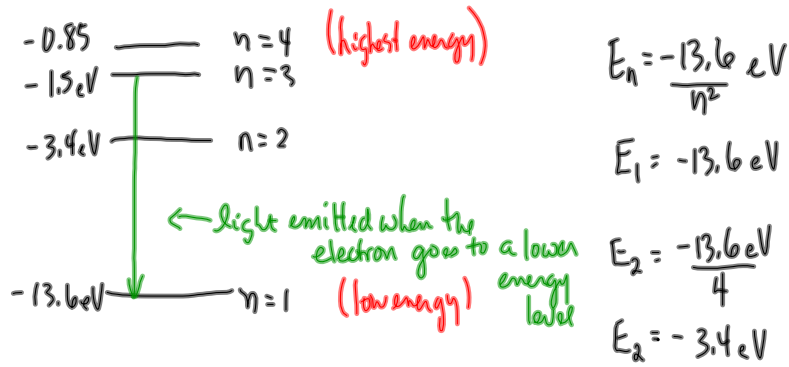 -0.85 n=4 (highest energy)
-1.5eV n=3
-3.4eV n=2
← light emitted when the
electron goes to a lower
energy
level
-13.6eV n=1 (low energy)
Eₙ = -13.6/n² eV
E₁ = -13.6eV
E₂ = -13.6eV/4
E₂ = -3.4eV